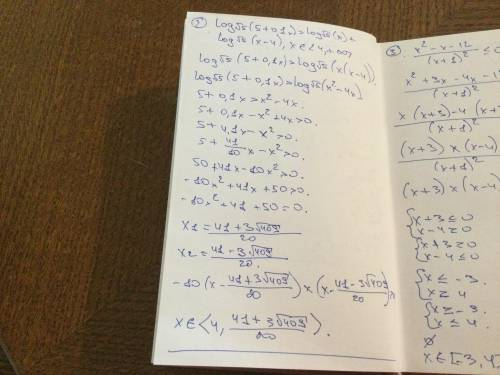 2) log√5 (5+0,1x) > log√5 (x) +
log√5 (x-4), x∈<4,+∞>
log√5 (5+0,1x) > log√5 (x(x-4))
log√5 (5+0,1x) > log√5 (x²-4x)
5+0,1x > x²-4x.
5+0,1x-x²+4x>0.
5+4,1x-x²>0.
5+41/10 x-x²>0.
50+41x-10x²>0.
-10x²+41x+50>0.
-10x²+41+50=0.
x1=41+3√409/20
x2=41-3√409/20.
-10(x-41+3√409/20)×(x-41-3√409/20)>
x∈<4, 41+3√409/20>.
3) x²-x-12/(x+1)² ≤0
x²+3x-4x-1
(x+1)²
x(x+3)-4(x+
(x+1)²
(x+3)×(x-4)
(x+1)²
(x+3)×(x-4)
{x+3≤0
{x-4≥0
{x+3≥0
{x-4≤0
{x≤-3.
{x≥4
{x≥-3.
{x≤4.
∅
x∈[-3,4]